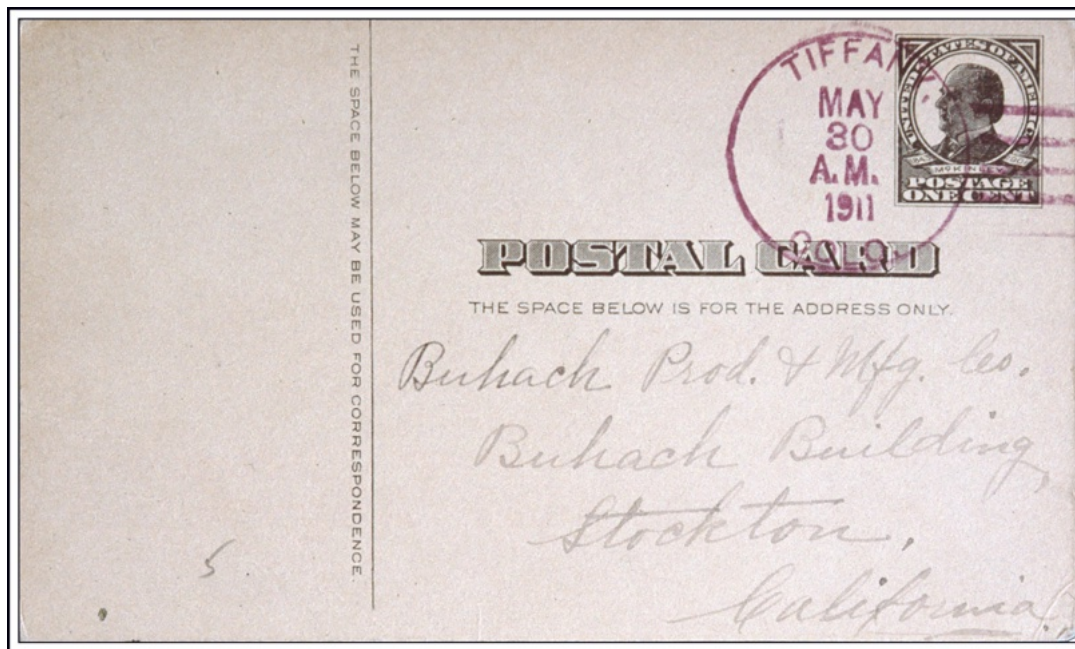 THE SPACE BELOW MAY BE USED FOR CORRESPONDENCE.
TIFFANY,
MAY
30
A.M.
1911
COLO.
UNITED STATES OF AMERICA
McKINLEY
POSTAGE
ONE CENT
POSTAL CARD
THE SPACE BELOW IS FOR THE ADDRESS ONLY.
Buhach Prod. & Mfg. Co.
Buhach Building,
Stockton,
California.
5.